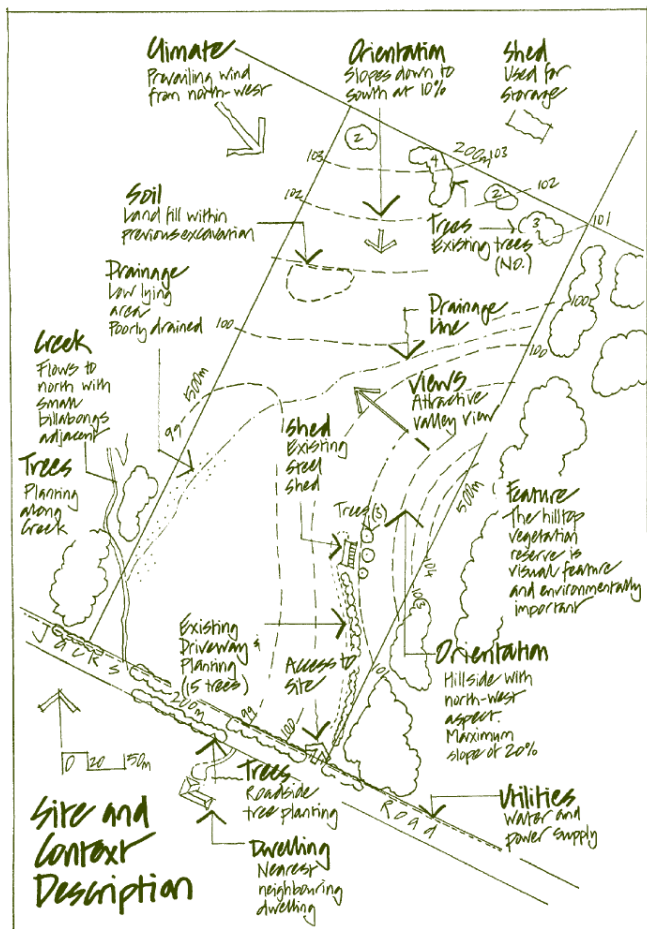 Climate
Prevailing wind
from north-west
Orientation
Slopes down to
south at 10%
Shed
Used for
storage
2
103
200m
103
4
102
2
102
101
3
Soil
Land fill within
previous excavation
Trees
Existing trees
(No.)
Drainage
Low lying
area
Poorly drained
100
Drainage
Line
100
100
Creek
Flows to
north with
small
billabongs
adjacent
500m
99
Views
Attractive
valley view
Shed
Existing
Steel
Shed
Trees
Planting
along
Creek
Trees (3)
500m
Feature
The hilltop
vegetation
reserve is
visual feature
and environmentally
important
104
103
Existing
Driveway &
Planting
(15 trees)
Access to
Site
101
Orientation
Hillside with
north-west
aspect.
Maximum
slope of 20%
Jacks
200m
99
100
Road
0 20 50m
Trees
Roadside
tree planting
Utilities
Water and
power supply
Dwelling
Nearest
neighbouring
dwelling
Site and
Context
Description